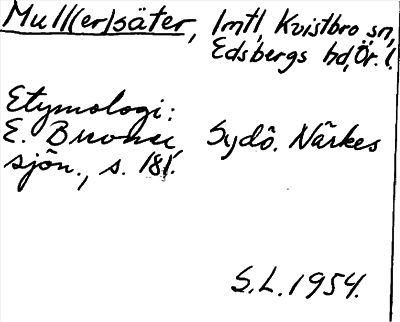 Mull(er)säter, Imtl, Kvistbro sn,
Edsbergs hd, Ör. l.
Etymologi:
E. Brorne, Sydö. Närkes
sjön., s. 181.
S.L. 1954.